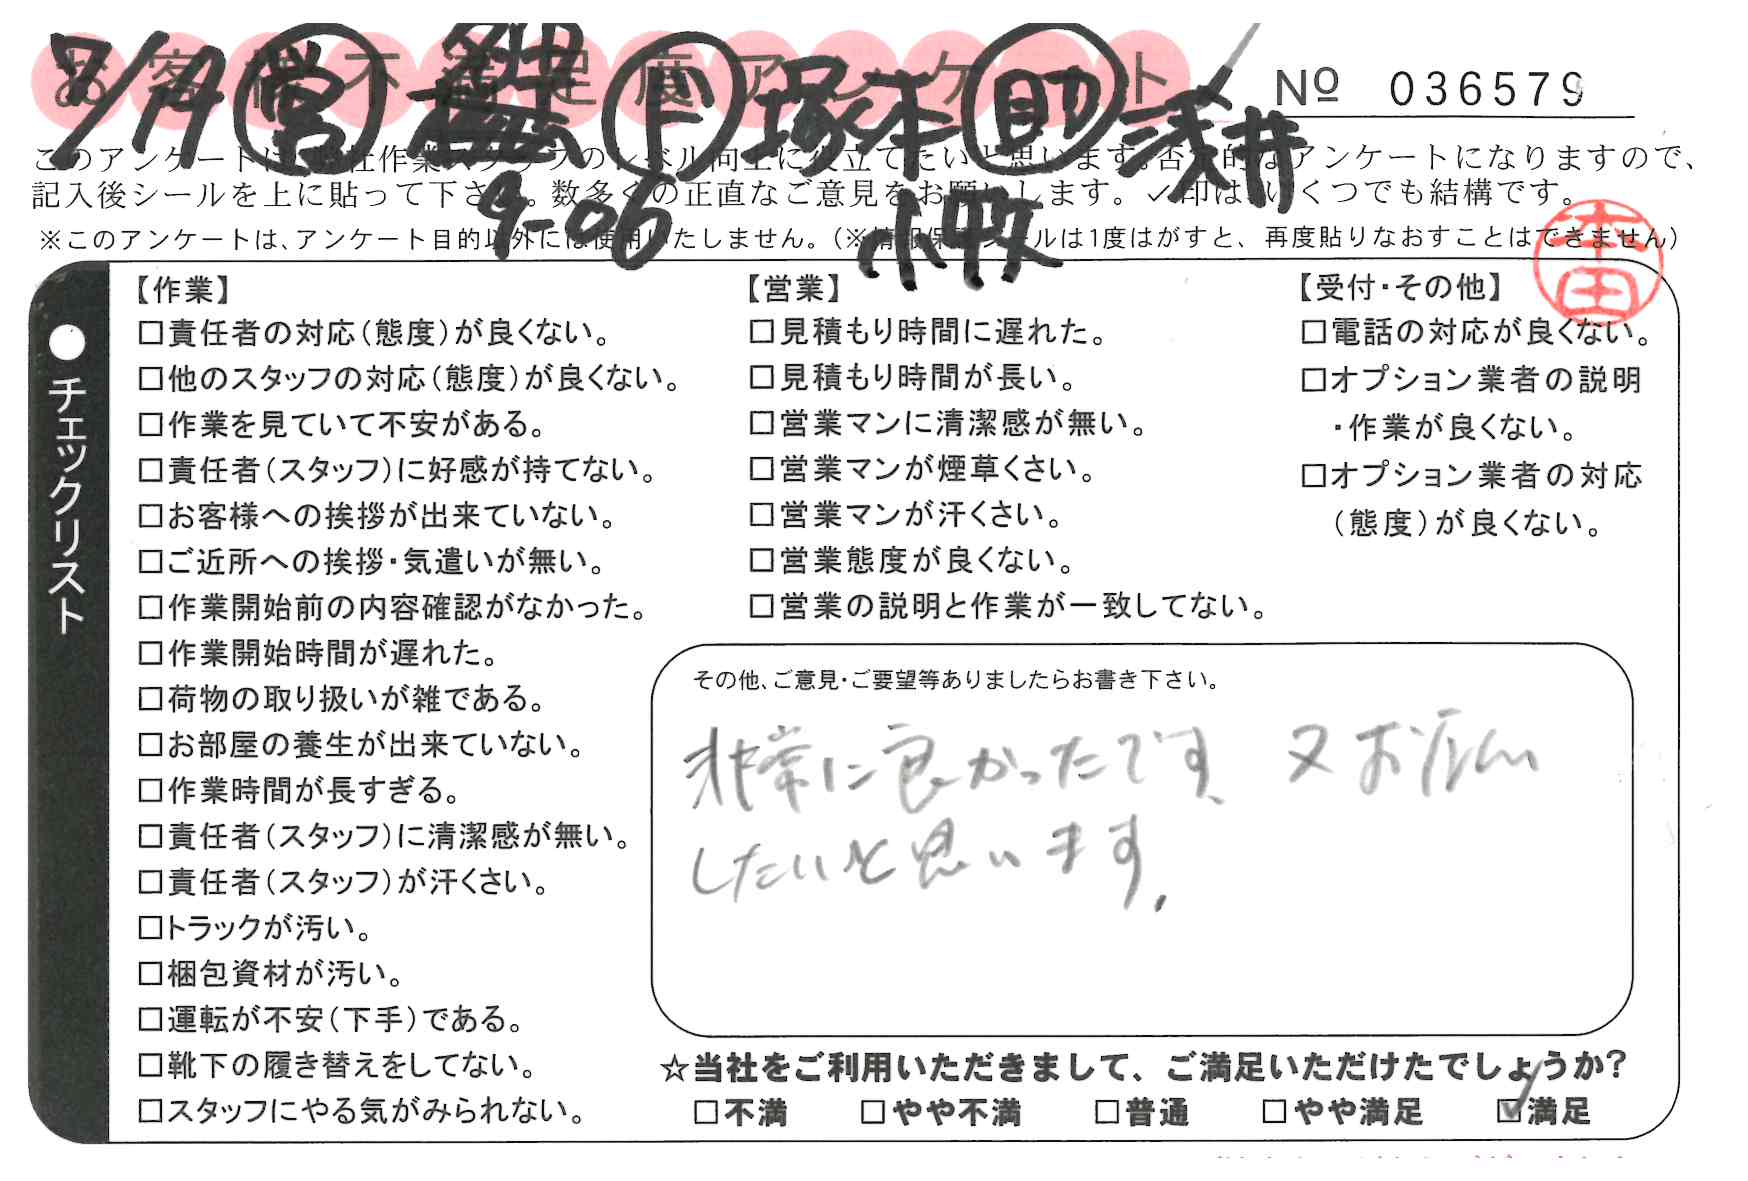 お客様不満足度アンケート
7/19 営 ド 塚本 助 浅井
9-06 小牧
Nº 036579
このアンケートは、弊社作業スタッフのレベル向上に役立てたいと思います。否定的なアンケートになりますので、
記入後シールを上に貼って下さい。数多くの正直なご意見をお願いします。✓印は、いくつでも結構です。
※このアンケートは、アンケート目的以外には使用いたしません。(※情報保護シールは1度はがすと、再度貼りなおすことはできません)
本田
●チェックリスト
【作業】
□責任者の対応(態度)が良くない。
□他のスタッフの対応(態度)が良くない。
□作業を見ていて不安がある。
□責任者(スタッフ)に好感が持てない。
□お客様への挨拶が出来ていない。
□ご近所への挨拶・気遣いが無い。
□作業開始前の内容確認がなかった。
□作業開始時間が遅れた。
□荷物の取り扱いが雑である。
□お部屋の養生が出来ていない。
□作業時間が長すぎる。
□責任者(スタッフ)に清潔感が無い。
□責任者(スタッフ)が汗くさい。
□トラックが汚い。
□梱包資材が汚い。
□運転が不安(下手)である。
□靴下の履き替えをしてない。
□スタッフにやる気がみられない。
【営業】
□見積もり時間に遅れた。
□見積もり時間が長い。
□営業マンに清潔感が無い。
□営業マンが煙草くさい。
□営業マンが汗くさい。
□営業態度が良くない。
□営業の説明と作業が一致してない。
【受付・その他】
□電話の対応が良くない。
□オプション業者の説明
・作業が良くない。
□オプション業者の対応
(態度)が良くない。
その他、ご意見・ご要望等ありましたらお書き下さい。
非常に良かったです、又お願い
したいと思います。
☆当社をご利用いただきまして、ご満足いただけたでしょうか?
□不満 □やや不満 □普通 □やや満足 ☑満足